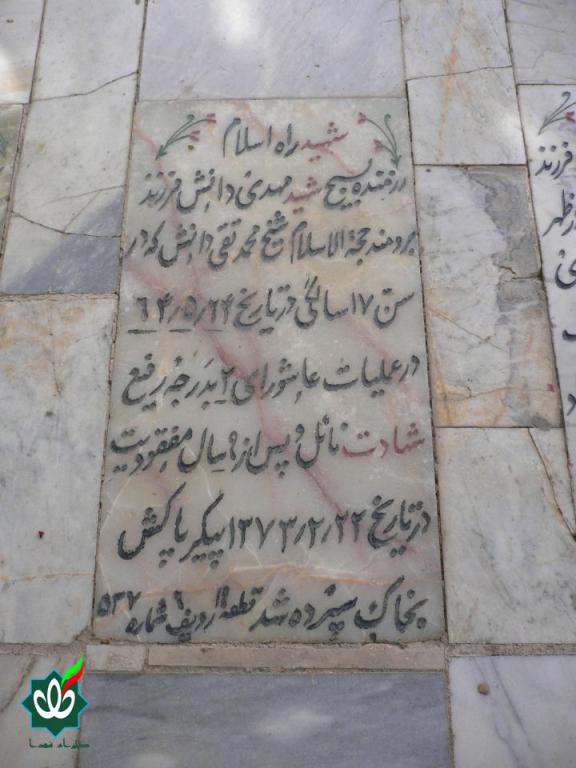 شهید راه اسلام
رزمنده بسیج شهید مهدی دانش فرزند
برومند حجة الاسلام شیخ محمد تقی دانش که در
سن ۱۷ سالگی در تاریخ ۶۴٫۵٫۲۴
در عملیات عاشورای ۲ بدرجه رفیع
شهادت نائل و پس از ۹ سال مفقودیت
در تاریخ ۱۳۷۳٫۲٫۲۲ پیکر پاکش
بخاک سپرده شد قطعه ردیف ۶ شماره ۵۳۷
فرزند